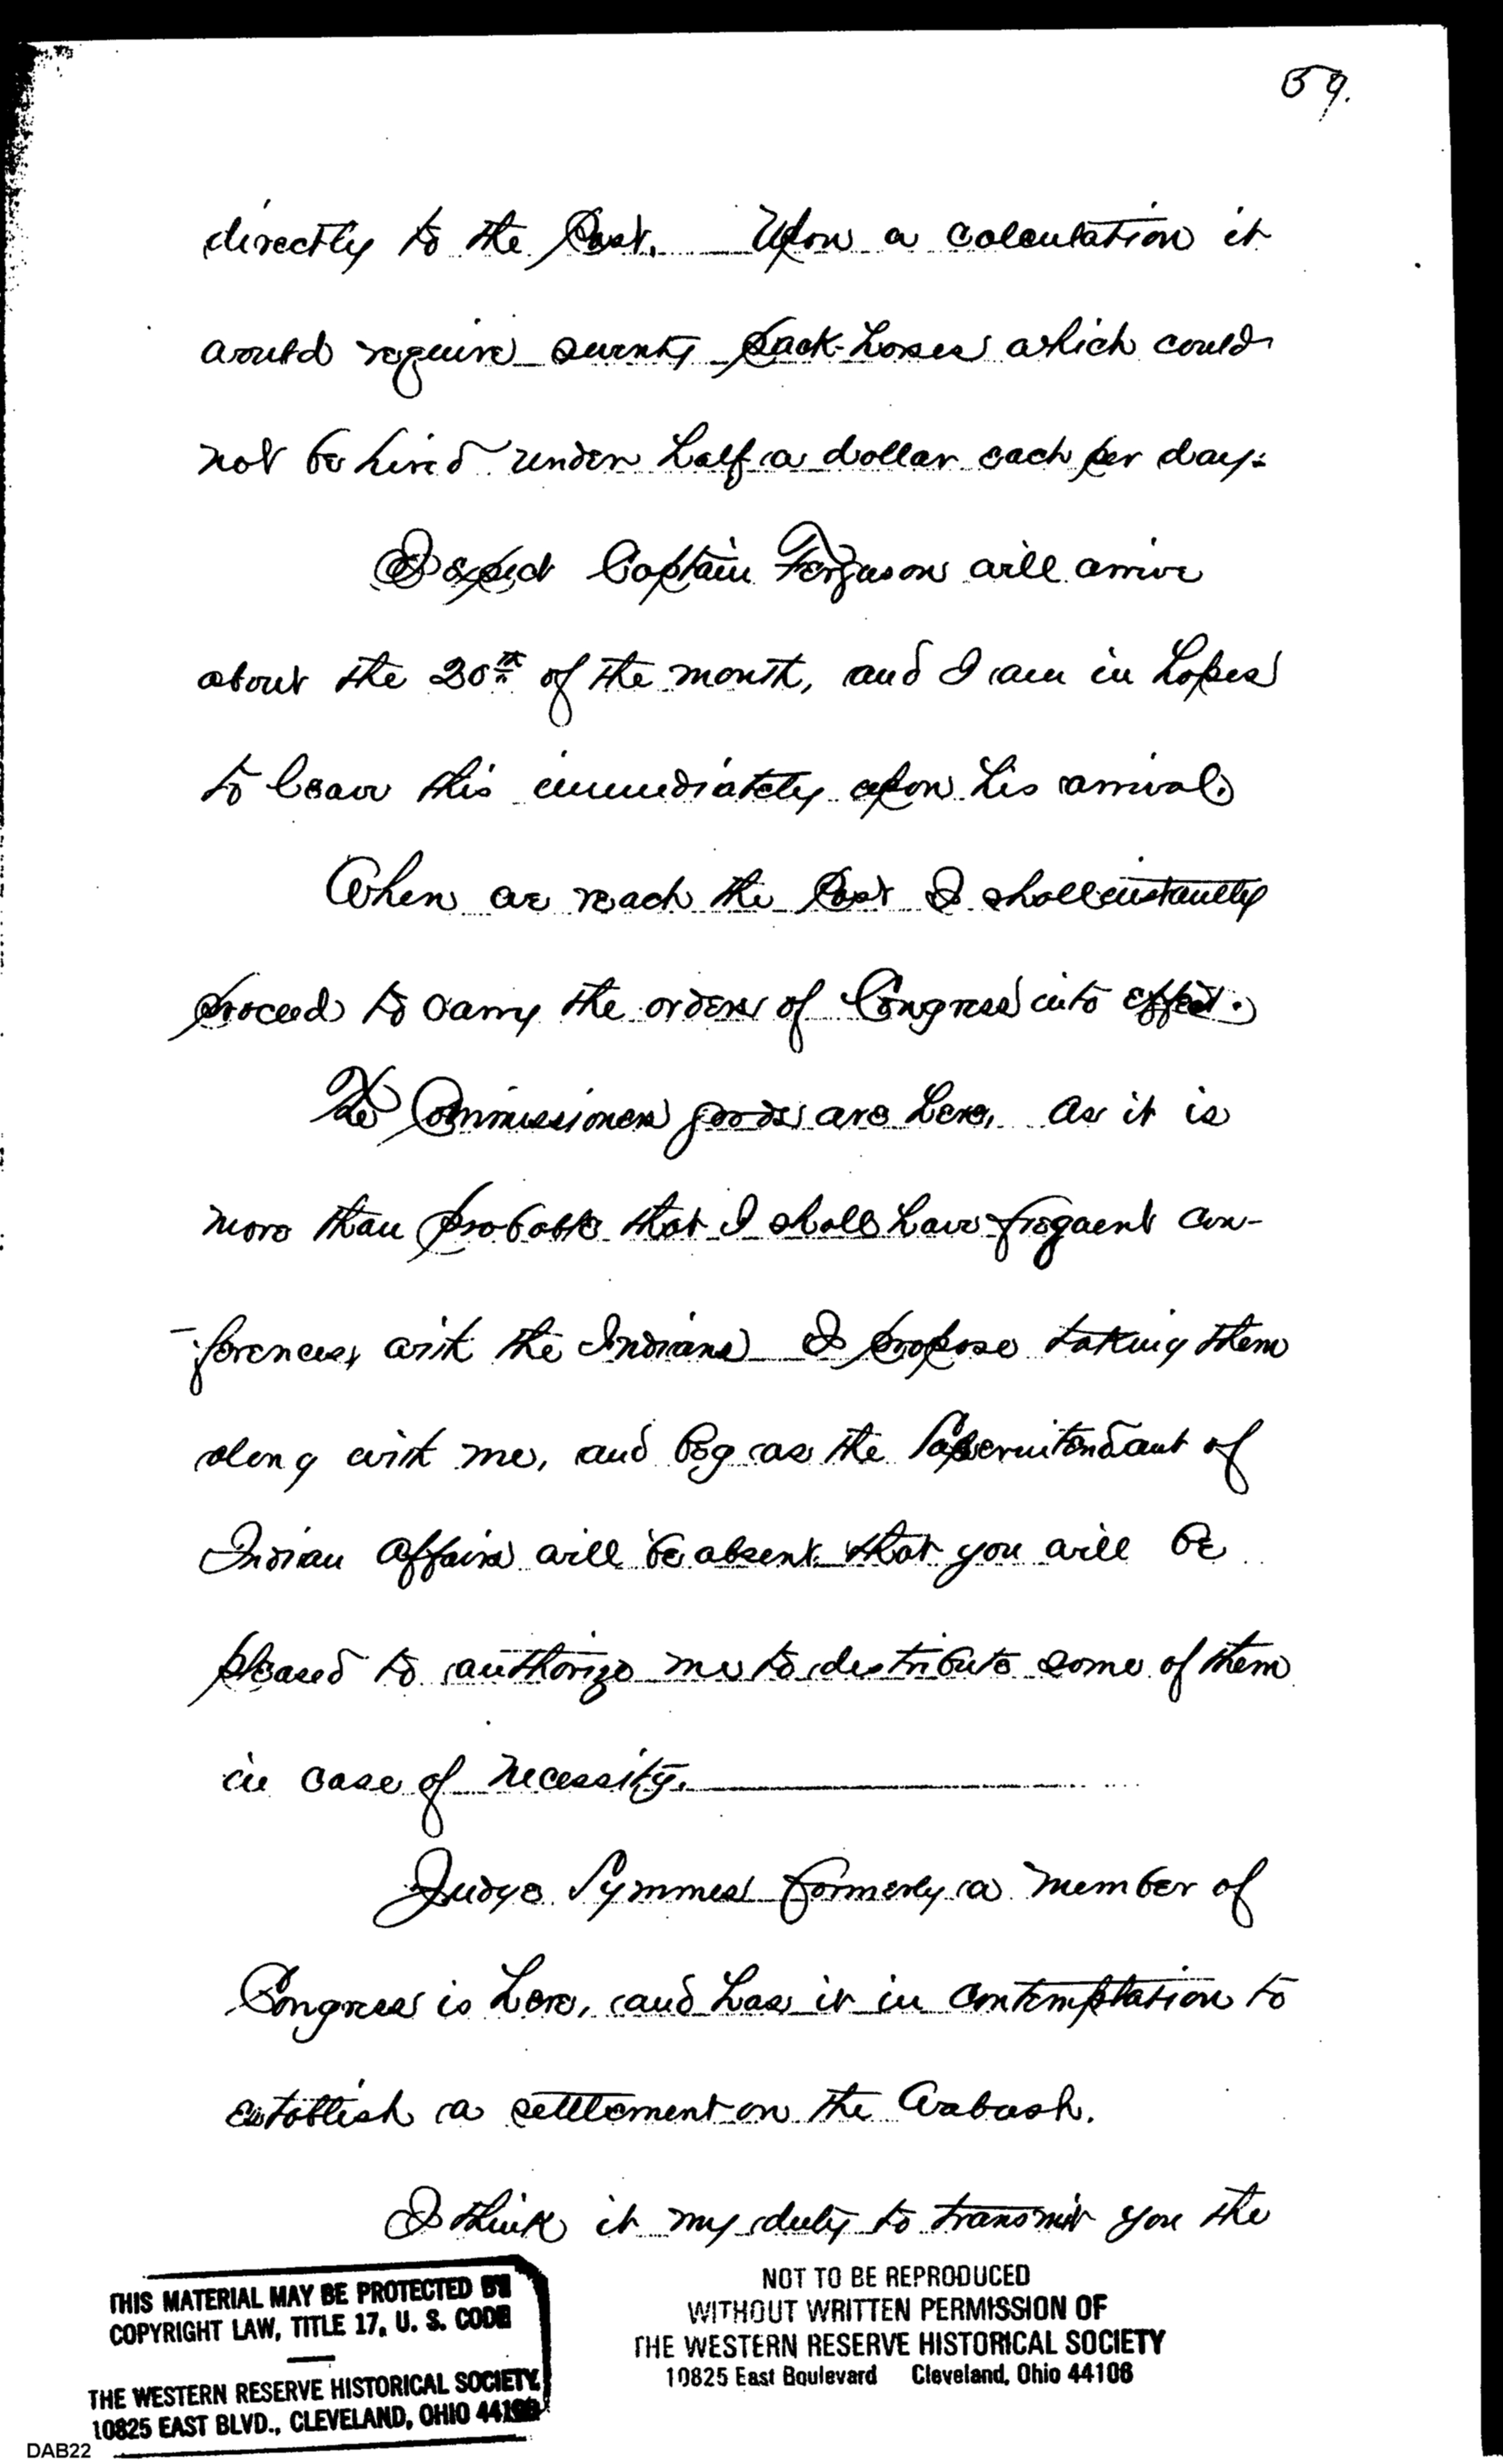 59.
directly to the Post. Upon a calculation it
would require seventy pack-horses which could
not be hired under half a dollar each per day.
I expect Captain Ferguson will arrive
about the 20th of the month, and I am in hopes
to leave this immediately upon his arrival.
When we reach the Post I shall instantly
proceed to carry the orders of Congress into effect.
The Commissioners goods are here, As it is
more than probable that I shall have frequent con-
-ferences, with the Indians I propose taking them
along with me, and beg as the Superintendant of
Indian affairs will be absent that you will be
pleased to authorize me to distribute some of them
in case of necessity.
Judge Symmes formerly a member of
Congress is here, and has it in contemplation to
establish a settlement on the Wabash.
I think it my duty to transmit you the
THIS MATERIAL MAY BE PROTECTED BY
COPYRIGHT LAW, TITLE 17, U. S. CODE
THE WESTERN RESERVE HISTORICAL SOCIETY
10825 EAST BLVD., CLEVELAND, OHIO 44106
NOT TO BE REPRODUCED
WITHOUT WRITTEN PERMISSION OF
THE WESTERN RESERVE HISTORICAL SOCIETY
10825 East Boulevard Cleveland, Ohio 44106
DAB22